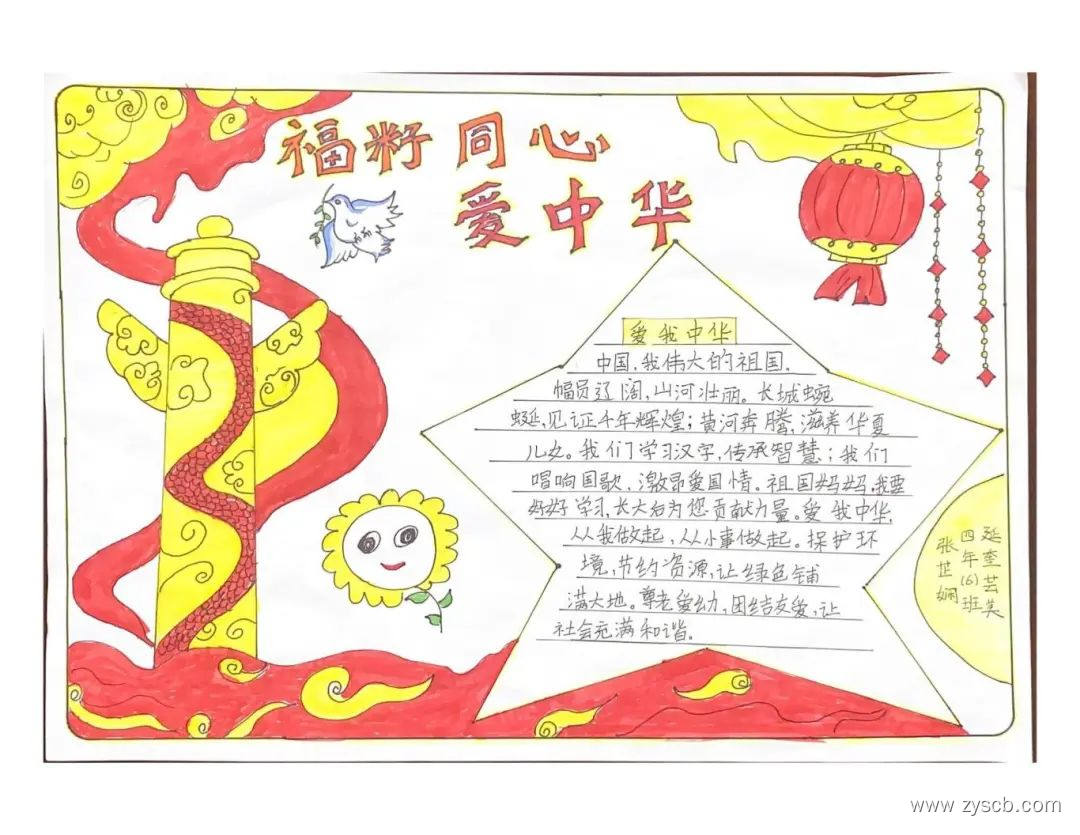 福籽同心
爱中华
爱我中华
中国，我伟大的祖国，
幅员辽阔，山河壮丽。长城蜿
蜒，见证千年辉煌；黄河奔腾，滋养华夏
儿女。我们学习汉字，传承智慧；我们
唱响国歌，激昂爱国情。祖国妈妈，我要
好好学习，长大后为您贡献力量。爱我中华，
从我做起，从小事做起。保护环
境，节约资源，让绿色铺
满大地。尊老爱幼，团结友爱，让
社会充满和谐。
延奎芸芙
四年(6)班
张芷娴
www.zyscb.com